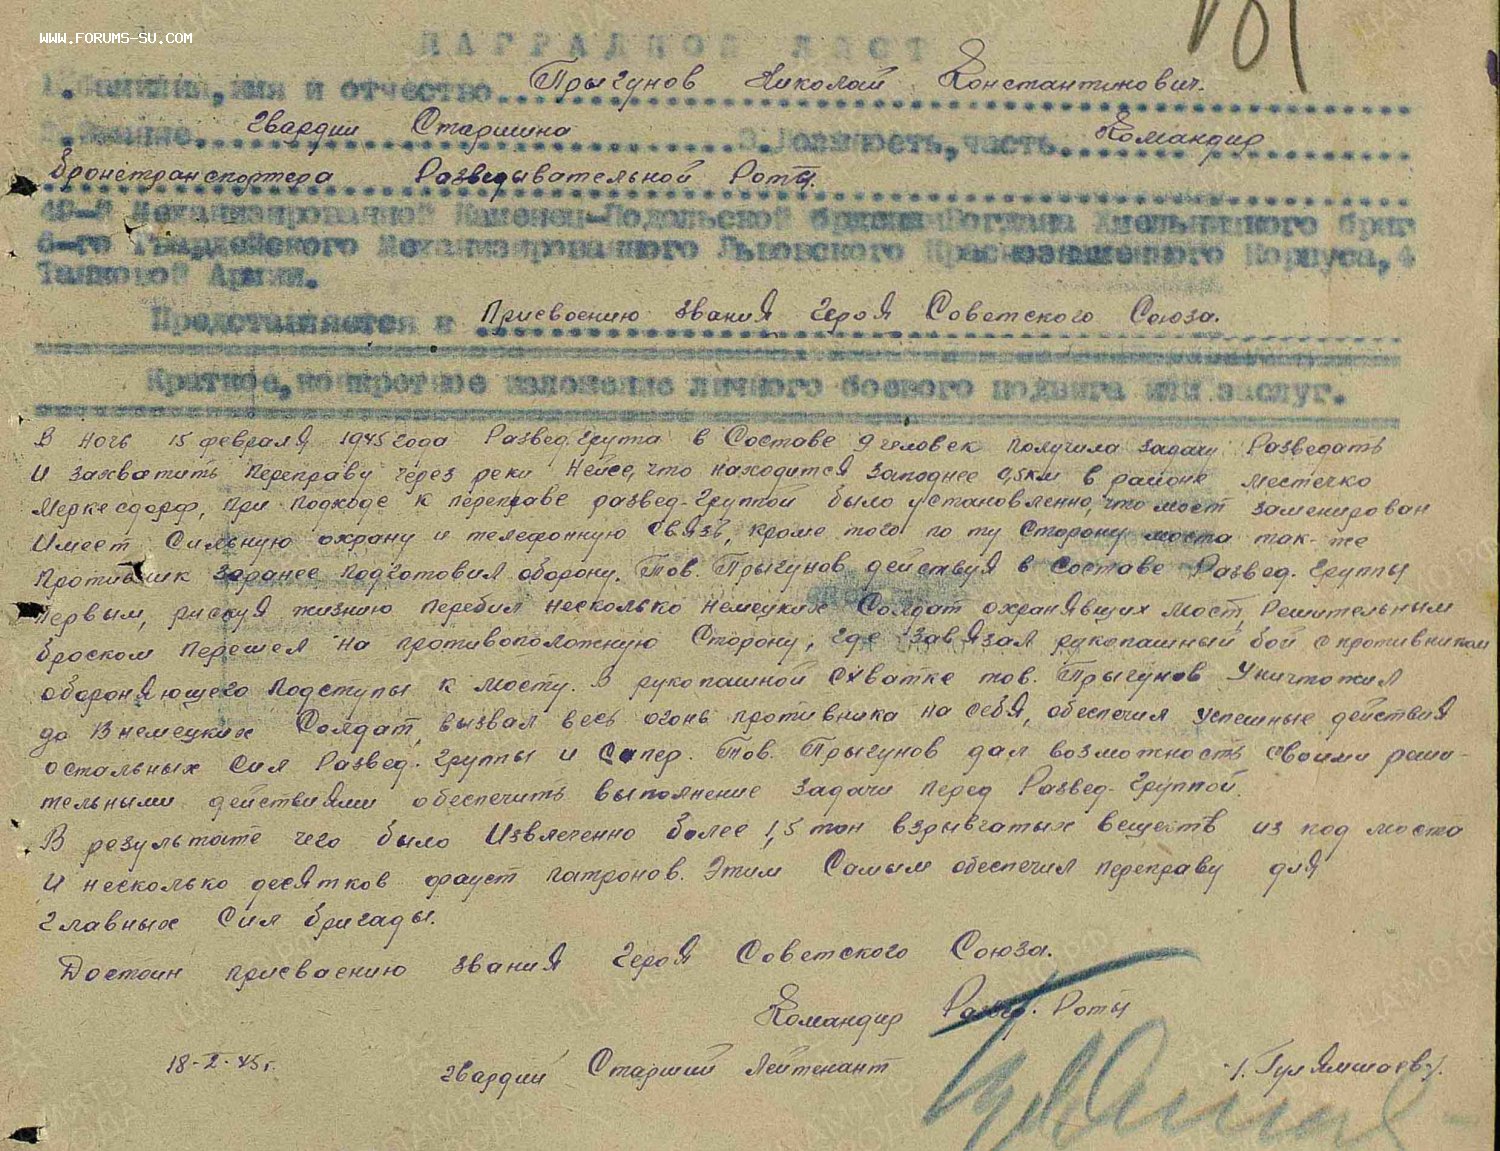 WWW.FORUMS-SU.COM
НАГРАДНОЙ ЛИСТ
1. Фамилия, имя и отчество Прыгунов Николай Константинович.
2. Звание. гвардии Старшина 3. Должность, часть. Командир
бронетранспортера Разведывательной Роты.
49-й Механизированной Каменец-Подольской ордена Богдана Хмельницкого бриг
6-го Гвардейского Механизированного Львовского Краснознаменного Корпуса, 4
Танковой Армии.
Представляется к Присвоению звания Героя Советского Союза.
Краткое, конкретное изложение личного боевого подвига или заслуг.
В ночь 15 февраля 1945 года Развед. группа в Составе 9 человек получила задачу Разведать
и захватить переправу через реки Нейсе, что находится западнее 0,5 км в районе местечко
Меркесдорф, при подходе к переправе развед-группой было установленно, что мост заменирован
Имеет Сильную охрану и телефонную Связь, кроме того по ту Сторону моста так-же
противник заранее подготовил оборону. Тов. Прыгунов действуя в Составе Развед. группы
первым, рискуя жизнию перебил несколько немецких Солдат охранявших мост, Решительным
броском перешел на противоположную Сторону, где завязал рукопашный бой с противником
обороняющего подступы к мосту. В рукопашной Схватке тов. Прыгунов Уничтожил
до 13 немецких Солдат, вызвал весь огонь противника на себя, обеспечил успешные действия
остальных Сил Развед. группы и Сапер. Тов. Прыгунов дал возможность своими реши-
тельными действиями обеспечить выполнение задачи перед Развед-группой.
В результате чего было Извлеченно более 1,5 тон взрывчатых веществ из под моста
и несколько десятков фауст патронов. Этим Самым обеспечил переправу для
главных Сил бригады.
Достоин присваению звания Героя Советского Союза.
Командир Развед. Роты
18-2-45г. гвардии Старший Лейтенант /. Гулямшаев./.